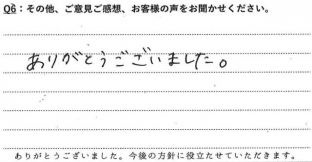 Q6：その他、ご意見ご感想、お客様の声をお聞かせください。
ありがとうございました。
ありがとうございました。今後の方針に役立たせていただきます。